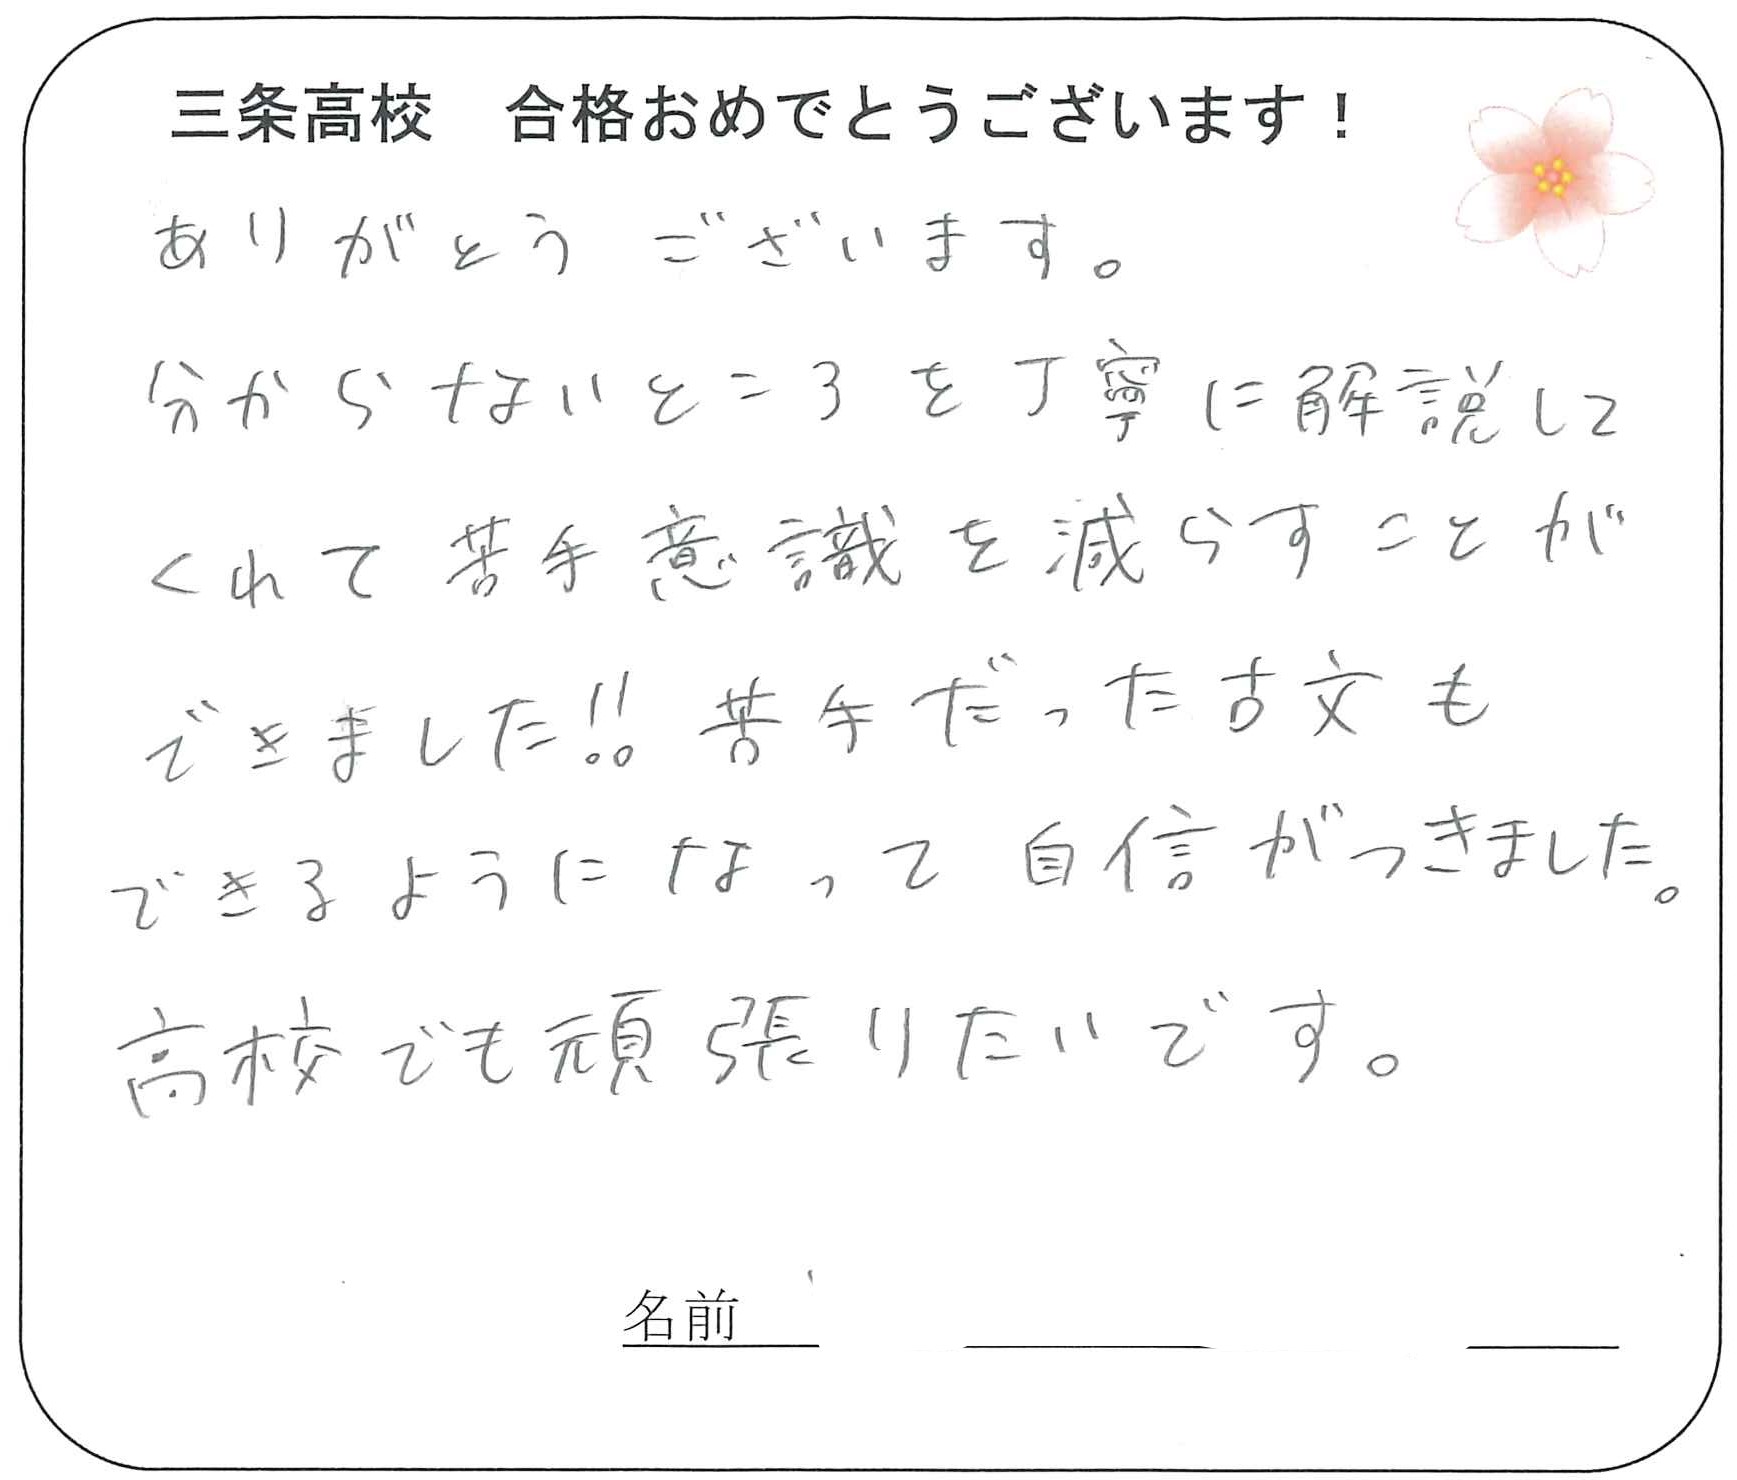 三条高校　合格おめでとうございます！
ありがとうございます。
分からないところを丁寧に解説して
くれて苦手意識を減らすことが
できました!!苦手だった古文も
できるようになって自信がつきました。
高校でも頑張りたいです。
名前